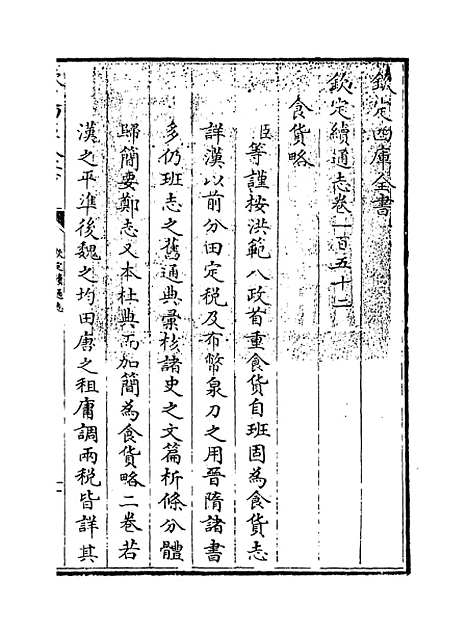 欽定四庫全書
欽定續通志卷一百五十二
食貨略
臣等謹按洪範八政首重食貨自班固為食貨志
詳漢以前分田定稅及布幣泉刀之用晉隋諸書
多仍班志之舊通典彙核諸史之文篇析條分體
歸簡要鄭志又本杜典而加簡為食貨略二卷若
漢之平準後魏之均田唐之租庸調兩稅皆詳其
欽定續通志
一